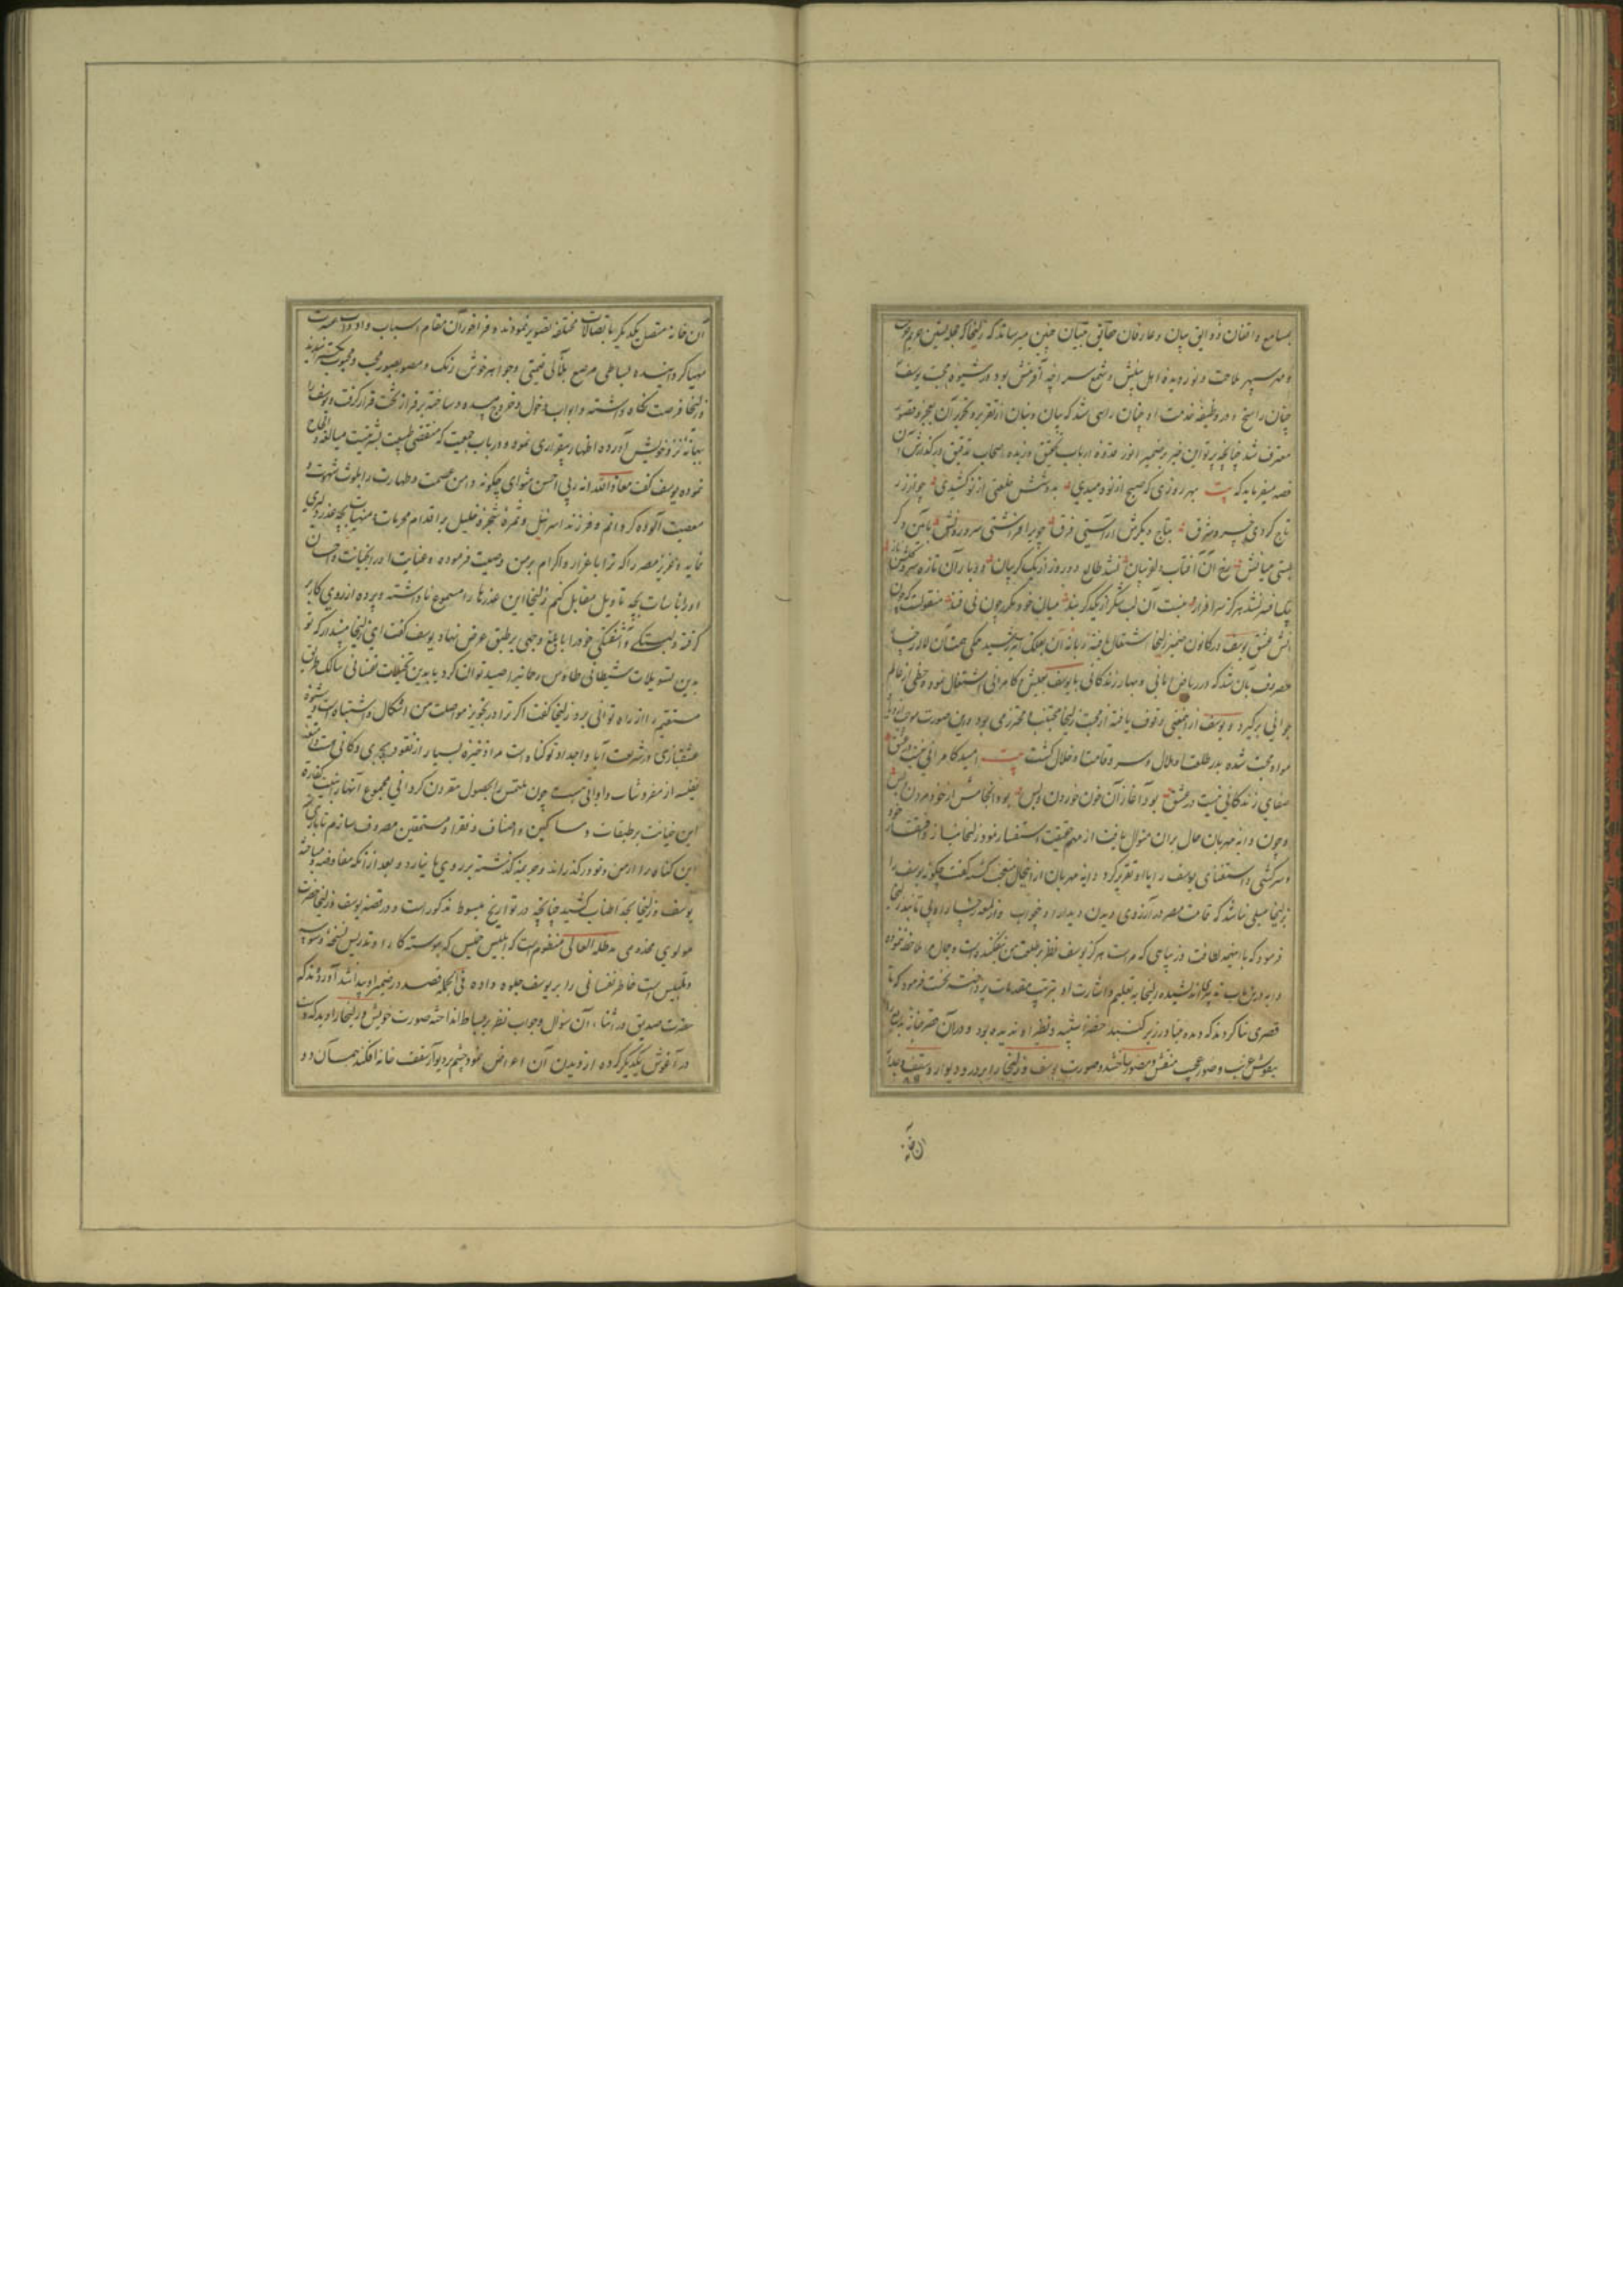 بمسامع واقفان دقایق بیان و عارفان حقایق تبیان چنین میرساند که زلیخا که
و مهر سپهر ملاحت و نور دیده اهل بینش و شمع سراچه آفرینش بود در شیوه محبت یوسف
چنان راسخ و در وظیفه خدمت او چنان راسی شد که بیان و بنان از تقریر و تحریر آن بعجز و قصور
معترف شد چنانچه پرتو این خبر بر ضمیر انور قدوه ارباب تحقیق و زبده اصحاب تدقیق در گذارش آن
قصه میفرماید که بیت بهر روزی که صبح از نو دمیدی بدوشش خلعتی از نو کشیدی چو از زر
تاج کردی خسرو شرق بتاج دیگرش آراستی فرق چو بر افراشتی سرو روانش بآیین دگر
بستی میانش رخ آن آفتاب دلفریبان نشد طالع دو روز از یک گریبان
آتش عشق یوسف در کانون ضمیر زلیخا اشتعال یافته زبانه آن بفلک اثیر رسید همگی همت آن
مصروف بآن شد که در ریاض امانی و بهار زندگانی با یوسف بعیش و کامرانی اشتغال نموده حظی از عالم
جوانی برگیرد و یوسف ازینمعنی وقوف یافته از صحبت زلیخا مجتنب و محترز می بود و این صورت موجب
مواد محبت شده بدر طلعتا و هلال و سرو قامتا و خلال گشت بیت امید کامرانی نیست در عشق
صفای زندگانی نیست در عشق بود آغاز آن خون خوردن و بس بود انجامش از خود مردن و بس
و چون دایه مهربان حال بران منوال یافت از مهم حقیقت استفسار نمود زلیخا نیاز و افتقار خود
و سرکشی و استغنای یوسف را با او تقریر کرد دایه مهربان ازینحال متعجب گشته گفت چگونه یوسف را
بزلیخا میلی نباشد که قامت مصر در آرزوی دیدن دیدار او خواب
فرمود که با اینهمه لطافت و زیبایی که مراست هرگز یوسف نظر بر طلعت من نیفکنده است و جمال مرا ملاحظه ننموده
دایه درین باب تدبیر اندیشیده زلیخا بتعلیم و اشارت او بترتیب مقدمات پرداخته نخست فرمود که تا
قصری بنا کردند که دیده بنا در زیر گنبد خضرا شبیه و نظیر او ندیده بود و در آن قصر خانه
بنقوش غریب و صور عجیب منقش و مصور ساختند و صورت یوسف و زلیخا را بر در و دیوار و سقف
آن خانه
آن خانه متصل بیکدیگر باتصالات مختلفه تصویر نمودند و فراخور آن مقام اسباب و ادوات عشرت
مهیا گردانیده بساطی مرصع بلآلی ثمین و جواهر خوش رنگ و مصور بصور محب و محبوب گسترانیدند
زلیخا فرصت نگاه داشته و ابواب دخول و خروج مسدود ساخته بر فراز تخت قرار گرفت و یوسف را
ببهانه نزد خویش آورده اظهار بیقراری نموده و در باب جمعیت که مقتضی طبیعت بشریت است مبالغه و الحاح
نموده یوسف گفت معاذ الله انه ربی احسن مثوای چگونه دامن عصمت و طهارت را بلوث شهوت و
معصیت آلوده گردانم و فرزند اسرائیل و ثمره شجره خلیل بر اقدام محرمات و منهیات بچه عذر دلیری
نماید و عزیز مصر را که ترا باعزاز و اکرام برمن وصیت فرموده و عنایت او در و احسان
او را باساءت بچه تاویل مقابل کنم زلیخا این عذرها را مسموع نداشته و پرده از روی کار بر
گرفته دلبستگی و آشفتگی خود را بابلغ وجهی بر طبق عرض نهاد یوسف گفت ای زلیخا مپندار که تو
بدین تسویلات شیطانی طاوس روحانیه را صید توان کرد یا بدین تخیلات نفسانی سالک طریق
مستقیم را از راه توانی برد زلیخا گفت اگر ترا در تجویز مواصلت من اشکال و اشتباه است و شیوه
عشقبازی در شریعت آبا و اجداد تو گناه است مرا ذخیره بسیار از نقود بحری و کانی هست و امتعه
نفیسه از مفروشات و اوانی هست چون ملتمس را بحصول مقرون گردانی مجموع آنها را بجهت کفاره
این خیانت بر طبقات مساکین و اصناف فقرا و مستحقین مصروف سازم تا باری
این گناه را از من و تو در گذراند و جریمه گذشته بر روی ما نیارد و بعد از آنکه مفاوضه و مباحثه
یوسف و زلیخا بحد اطناب کشید چنانچه در تواریخ مبسوط مذکور است و در قصه یوسف و زلیخا حضرت
مولوی مخدومی مد ظله العالی منظوم است که ابلیس خبیس که پیوسته کار او تدریس نسخه وسوسه
و تلبیس است خاطر نفسانی را بر یوسف جلوه داده فی الجمله قصد در ضمیر او پیدا شد آورده اند که
حضرت صدیق در اثناء آن سؤال و جواب نظر بر بساط انداخته صورت خویش و زلیخا را دید که دست
در آغوش یکدیگر کرده از دیدن آن اعراض نمود چشم بر دیوار و سقف خانه افکند همان دو